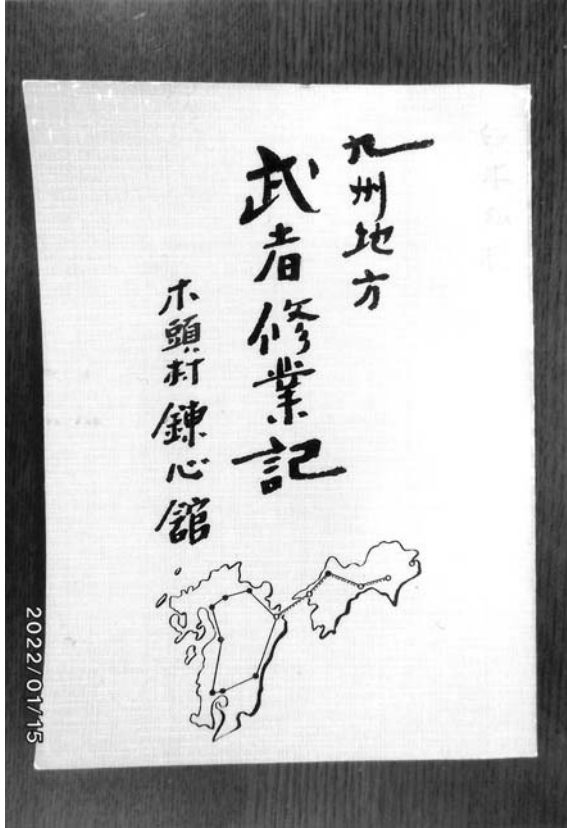 九州地方
武者修業記
木頭村錬心舘
2022/01/15